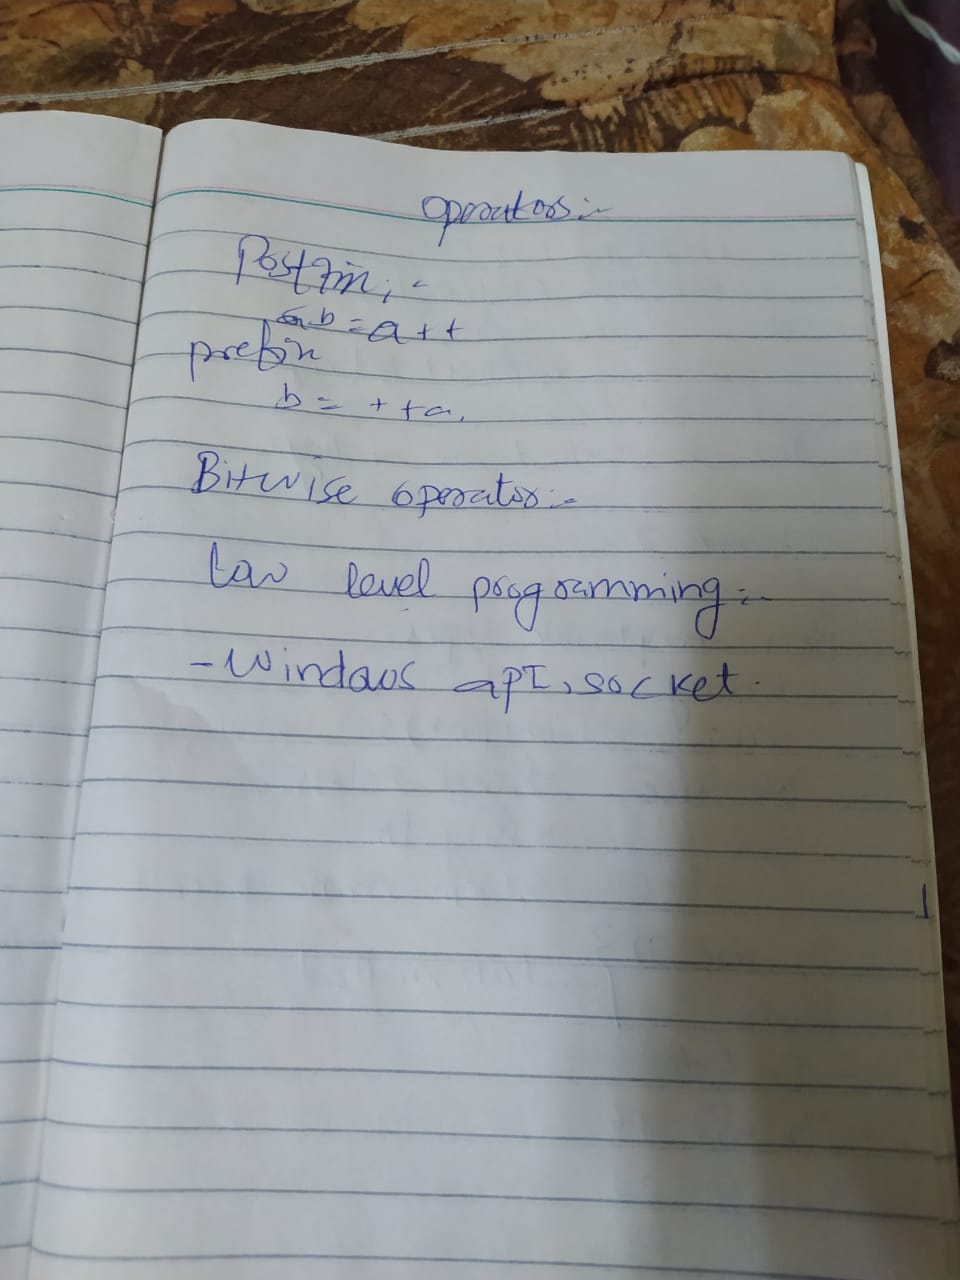 Operators:-
Postfix:-
b = a++
prefix
b = ++a,
Bitwise operator:-
Low level programming:-
- Windows apI, socket.